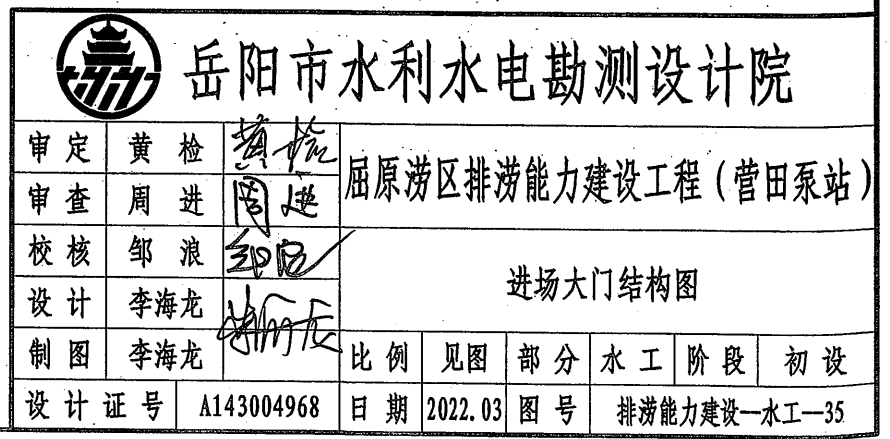 岳阳市水利水电勘测设计院
审定 黄检 黄检 屈原涝区排涝能力建设工程（营田泵站）
审查 周进 周进
校核 邹浪 邹浪 进场大门结构图
设计 李海龙 李海龙
制图 李海龙 比例 见图 部分 水工 阶段 初设
设计证号 A143004968 日期 2022.03 图号 排涝能力建设—水工—35